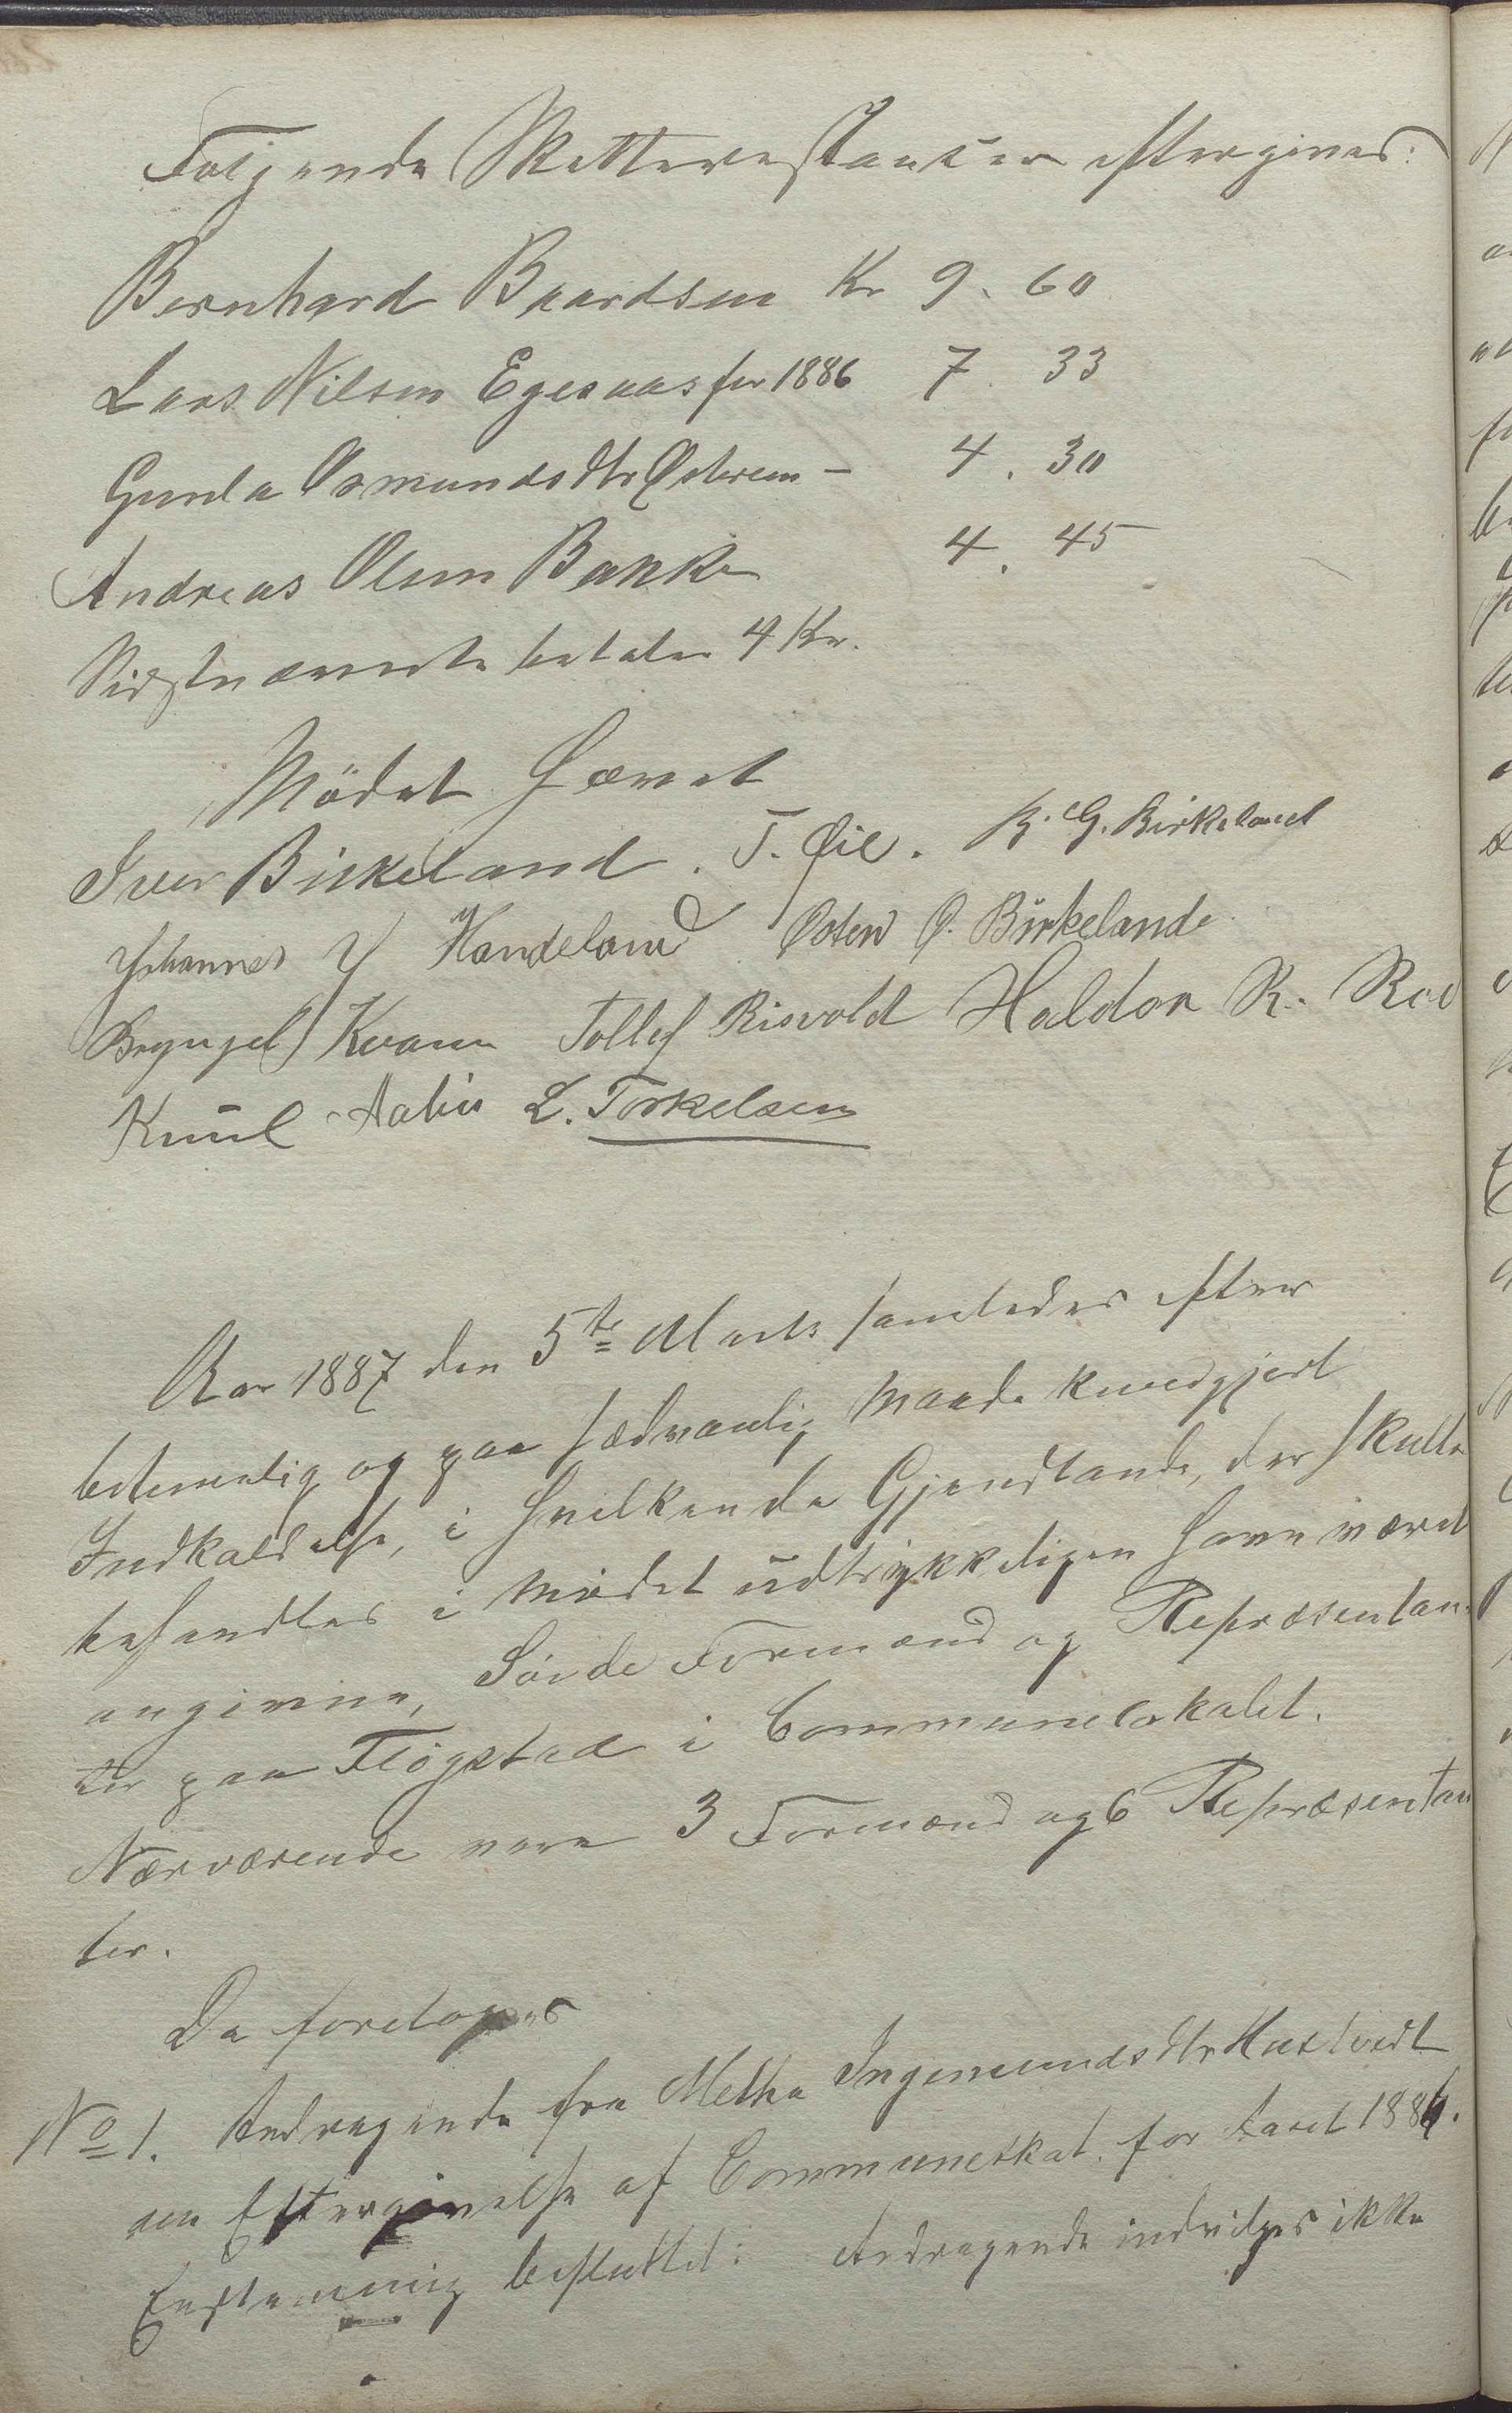 Følgende Skatterestancer eftergives:
Bernhard Baardsen Kr 9. 60
Lars Nilsen Egesaas for 1886 7. 33
Gunla Osmundsdtr Østrem – 4. 30
Andreas Olsen Bakke 4. 45
Sidstnævnte betaler 4 Kr.
Mödet hævet
Iver Birkeland. T. Øie. K. G. Birkeland
Johannes J Handeland Østen Ø. Birkelande
Brynjel Kvam Tollef Risvold Haldor K. Roe
Knud L. Torkelsen
Aar 1887 den 5te Marts samledes efter
betimelig og paa sædvanlig Maade kundgjort
Indkaldelse, i hvilken de Gjendstande, der skulle
behandles i Mødet udtrykkeligen have været
angivne, Søvde Formænd og Repræsentan-
ter paa Fløgstad i Communelokalet.
Nærværende vare 3 Formænd og 6 Repræsentan
ter.
Da foretoges
No 1. Andragende fra Metha Ingemundsdtr Hustvedt
om Eftergivelse af Communeskat for Aaret 1886.
Enstemmig besluttet: Andragende indvilges ikke